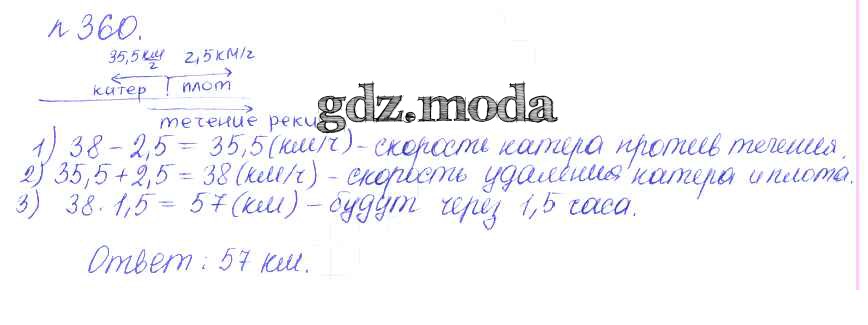 п 360.
35,5 км/г 2,5 км/г
катер плот
течение реки
gdz.moda
1) 38 - 2,5 = 35,5 (км/ч) - скорость катера против течения.
2) 35,5 + 2,5 = 38 (км/г) - скорость удаления катера и плота.
3) 38 · 1,5 = 57 (км) - будут через 1,5 часа.
Ответ: 57 км.